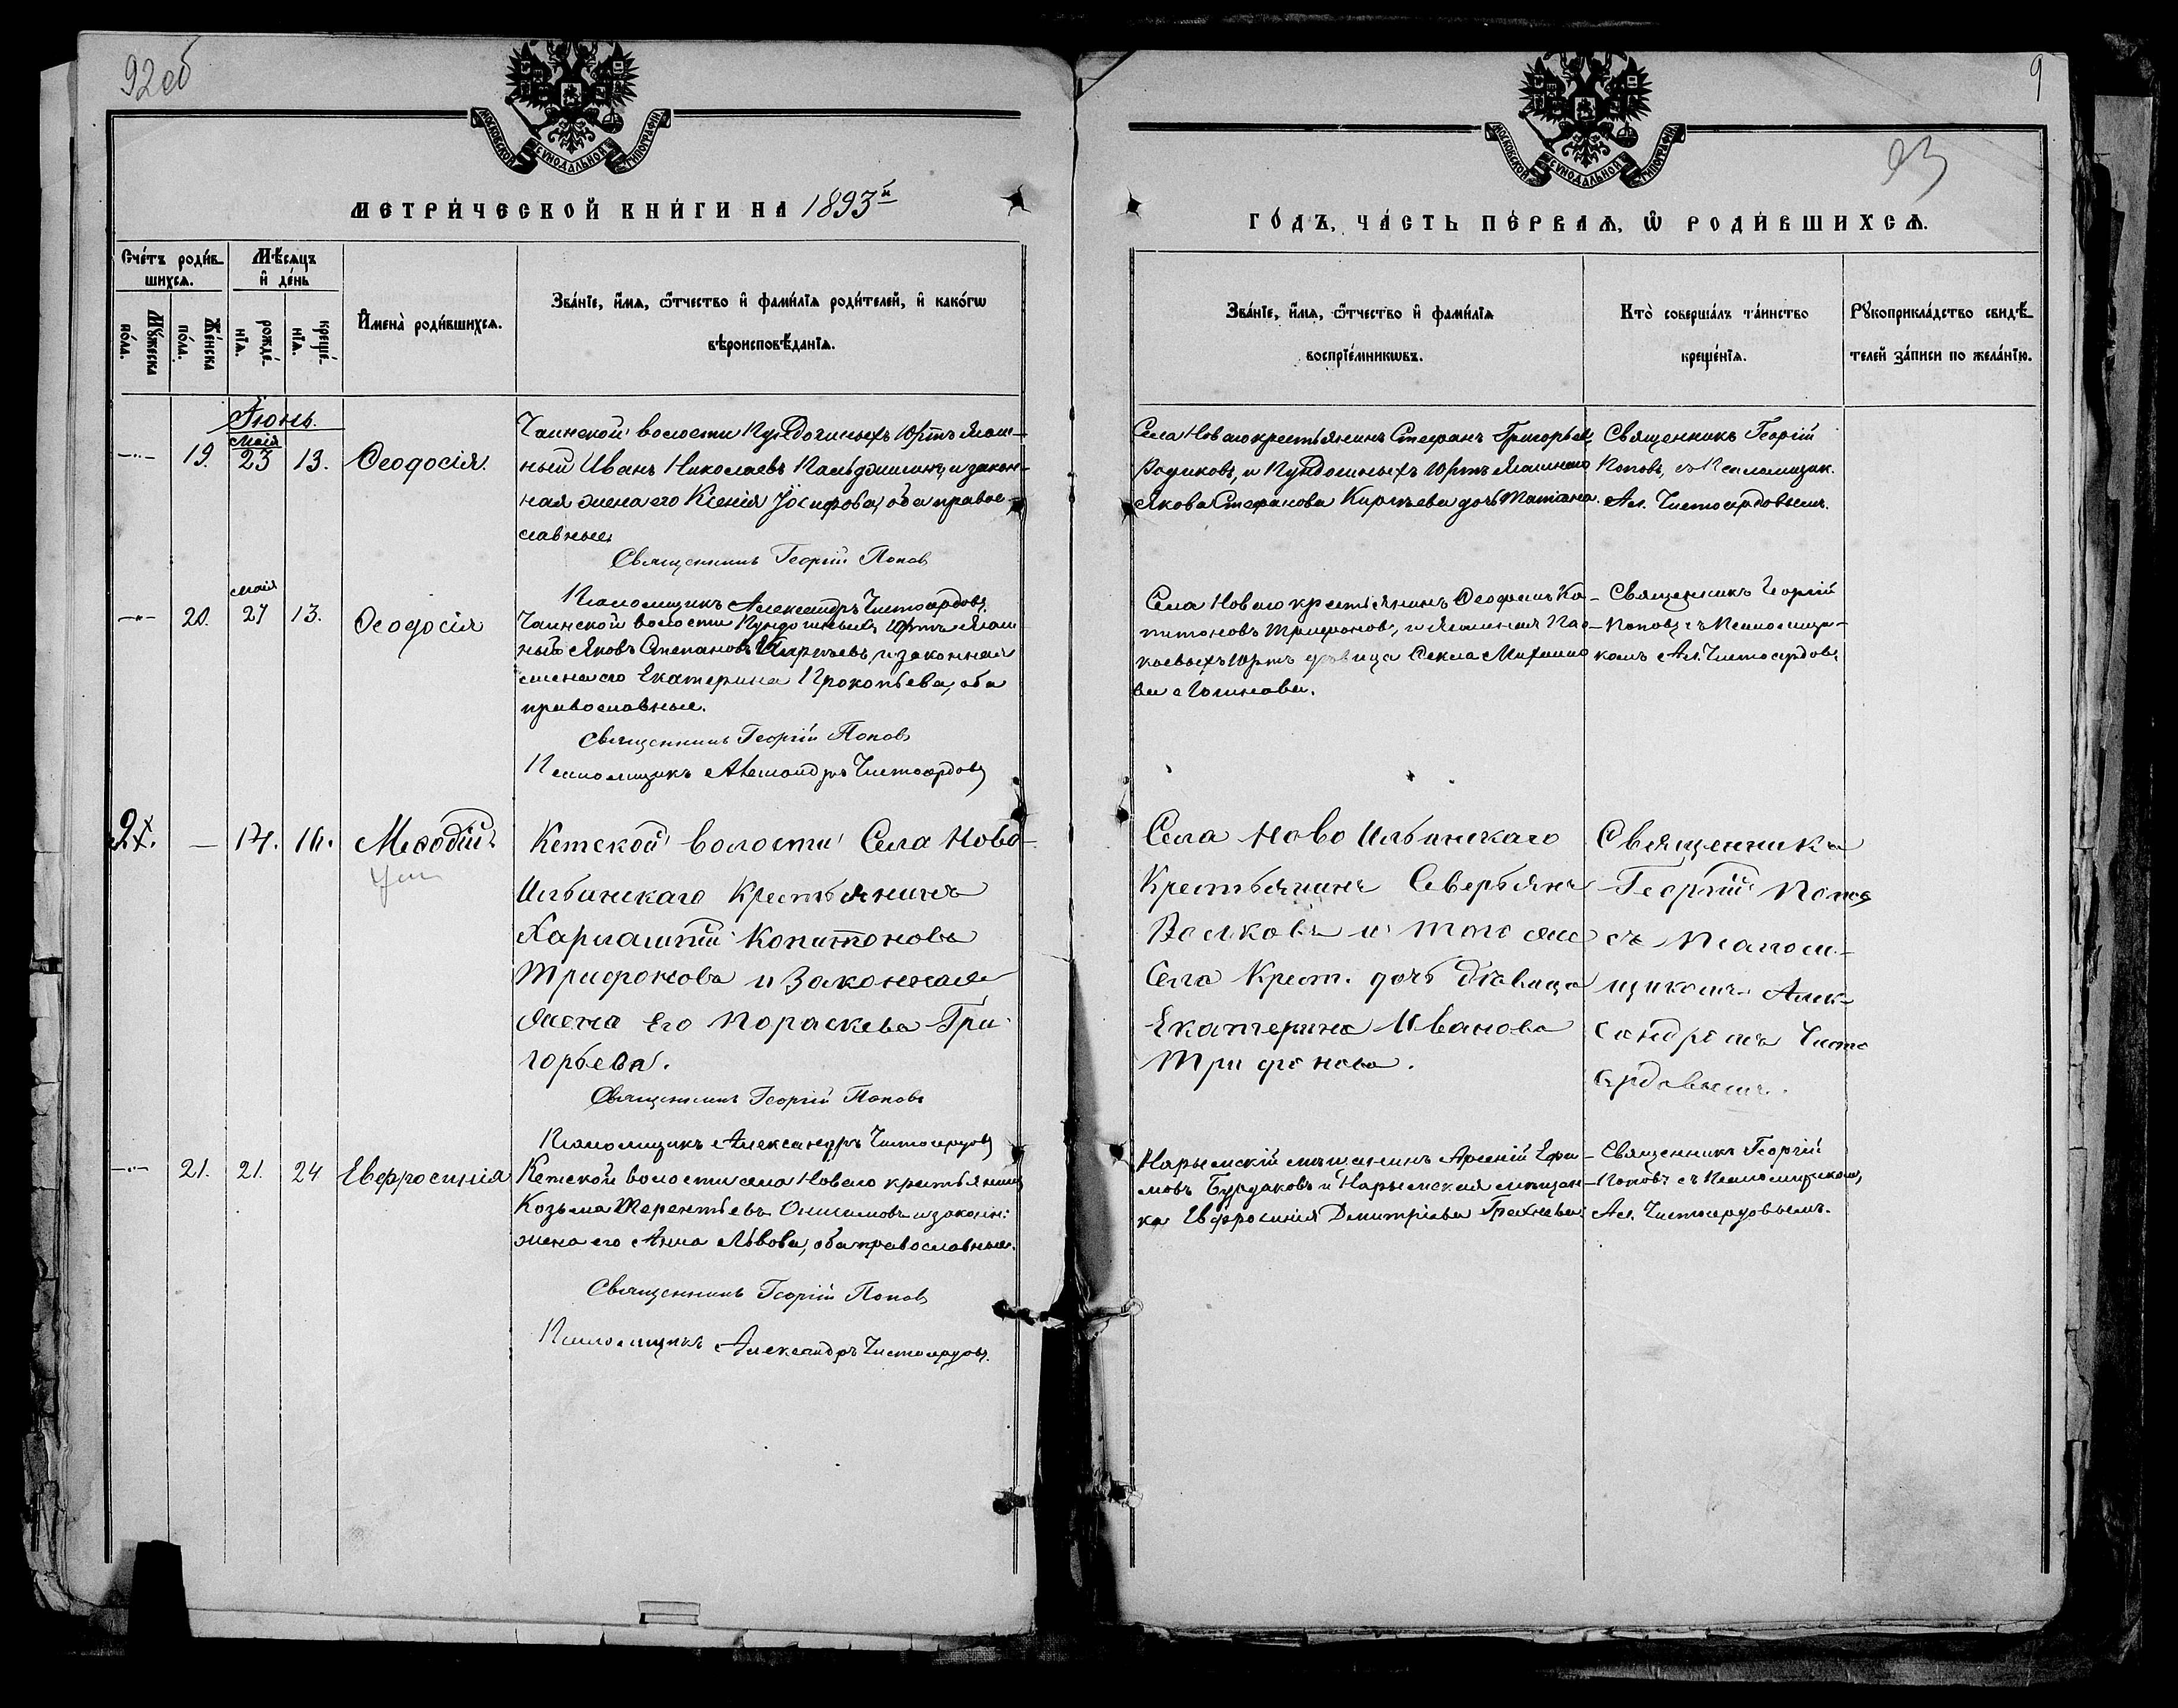 92 об
МОСКОВСКОЙ СѴНОДАЛЬНОЙ ТИПОГРАФІИ
МЕТРИ́ЧЕСКОЙ КНИ́ГИ НА 1893й
Счётъ роди́в-
шихся.
Мѣ́сяцъ
и҆ де́нь
Мꙋ́жеска
по́ла.
Же́нска
по́ла.
рожде́-
нїѧ.
креще́-
нїѧ.
И҆мена̀ роди́вшихсѧ.
Зва́нїе, и҆́мѧ, ѻ҆́тчество и҆ фами́лїѧ роди́телей, и҆ како́гѡ
вѣроисповѣ́данїѧ.
Іюнь.
Маія
19. 23 13. Ѳеодосія.
Чаинской волости юртъ Ясаш-
ный Иванъ Николаевъ и закон-
ная жена его Ксенія Іосифова, оба право-
славные.
Священникъ Георгій Попов
Псаломщикъ Александръ Чистосердовъ
Маія
20. 27 13. Ѳеодосія
Чаинской волости юртъ Ясаш
ный Яковъ Степановъ Киргѣевъ, и законная
жена его Екатерина Прокопьева, оба
православные.
Священникъ Георгій Поповъ
Псаломщикъ Александръ Чистосердовъ
— 14. 16. Меѳодій
Кетской волости Села Ново-
Ильинскаго Крестьянинъ
Харлампій Копитоновъ
Трифоновъ и Законная
жена Его Пораскева Гри-
горьева.
Священникъ Георгій Поповъ
Псаломщикъ Александръ Чистосердовъ
21. 21. 24 Евфросинія
Кетской волости села Новаго крестьянинъ
Козьма Терентьевъ Онисимовъ и законн:
жена его Анна Львова, оба православные.
Священникъ Георгій Поповъ
Псаломщикъ Александръ Чистосердовъ.
9
93
МОСКОВСКОЙ СѴНОДАЛЬНОЙ ТИПОГРАФІИ
ГО́ДЪ, ЧА́СТЬ ПЕ́РВАѦ, Ѡ҆ РОДИ́ВШИХСѦ.
Зва́нїе, и҆́мѧ, ѻ҆́тчество и҆ фами́лїѧ
воспрїе́мникѡвъ.
Кто̀ соверша́лъ та́инство
креще́нїѧ.
Рꙋкоприкла́дство свидѣ́-
телей за́писи по жела́нїю.
Села Новаго крестьянинъ Стефанъ Григорьев
Родиковъ, и юртъ Ясашнаго
Якова Стефанова Киргѣева дочь Татіана.
Священникъ Георгій
Поповъ, съ Псаломщик.
Ал. Чистосердовымъ.
Села Новаго крестьянинъ Ѳеофанъ Ка-
питоновъ Трифоновъ, и Ясашная Па-
юртъ дѣвица Ѳекла Михайло
ва
Священникъ Георгій
Поповъ съ Псаломщи-
комъ Ал. Чистосердов
Села Ново Ильинскаго
Крестьянинъ Северьянъ
Волковъ и того же
Села Крест. дочь дѣвица
Екатерина Иванова
Трифонова.
Священникъ
Георгій Попов
съ Псалом-
щикомъ Алек-
сандромъ Чисто
сердовымъ.
Нарымскій мѣщанинъ Арсеній Ефи-
мовъ Бурдаковъ и Нарымская мѣщан-
ка Евфросинія Димитріева Грехнева.
Священникъ Георгій
Поповъ съ Псаломщикомъ
Ал. Чистосердовымъ.